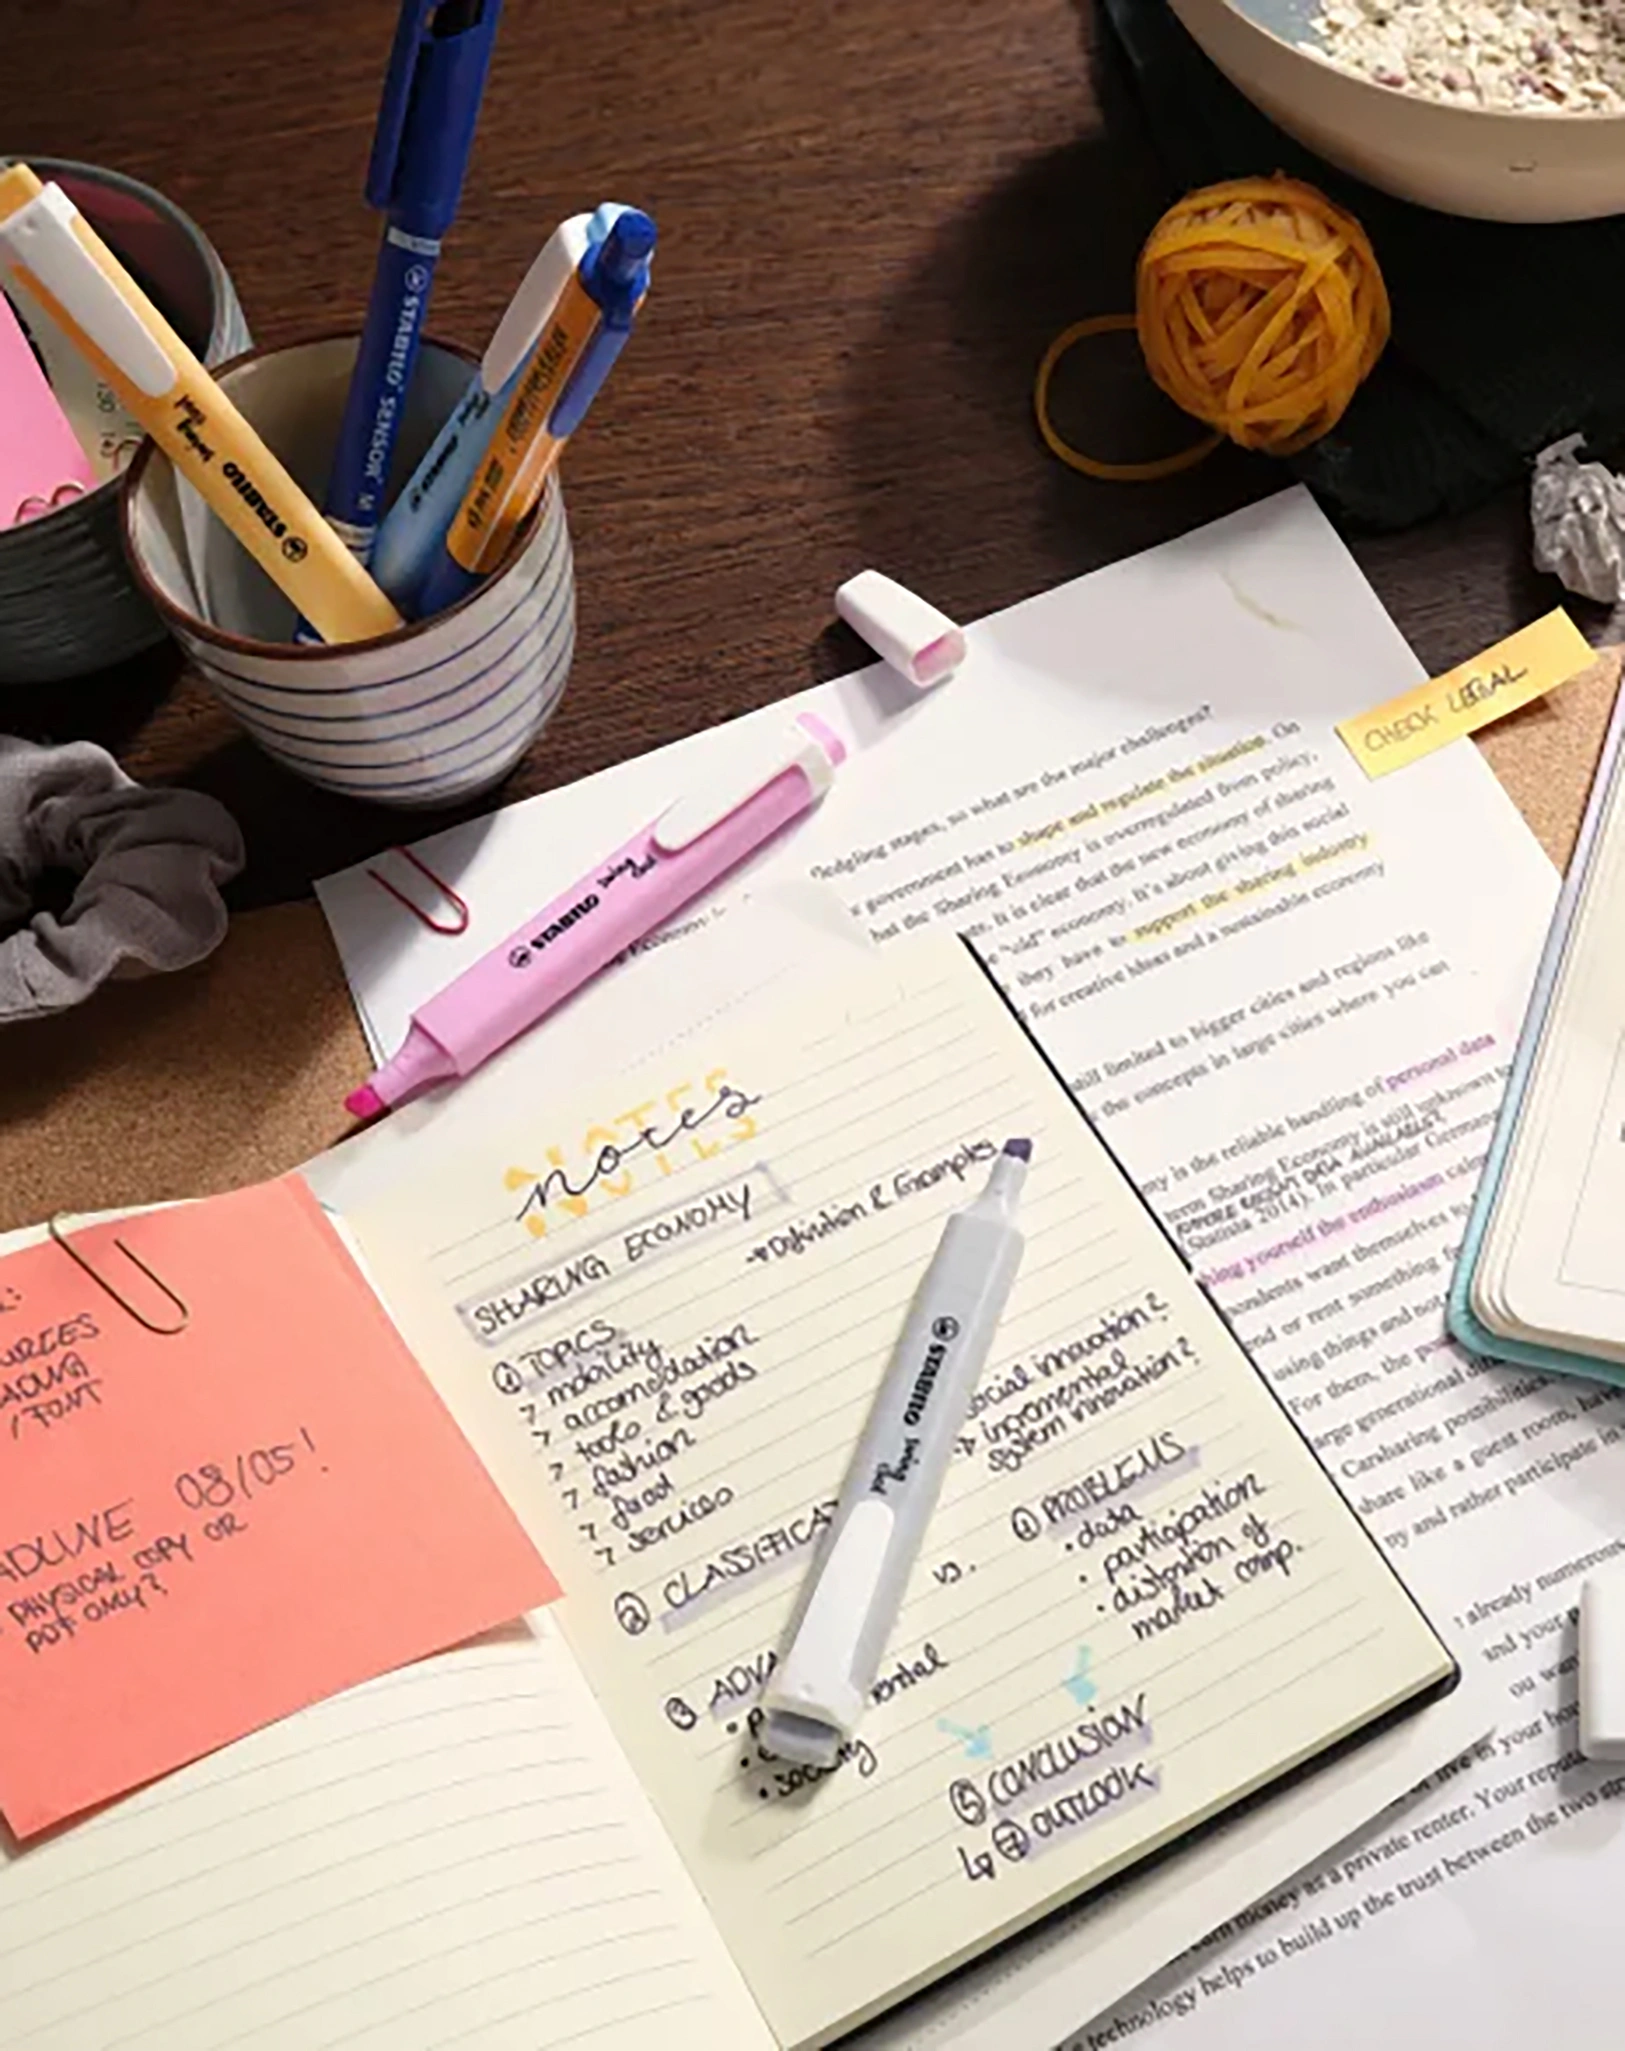 STABILO swing cool
STABILO SENSOR M
STABILO
CHECK LEGAL
STABILO swing cool
fledgling stages, so what are the major challenges?
government has to shape and regulate the situation. On
hat the Sharing Economy is overregulated from policy,
ate. It is clear that the new economy of sharing
"old" economy. It's about giving this social
they have to support the sharing industry
for creative ideas and a sustainable economy
still limited to bigger cities and regions like
the concepts in large cities where you can
my is the reliable handling of personal data
term Sharing Economy is still unknown to
(Statista 2014). In particular German
ing yourself the enthusiasm
pondents want themselves to
end or rent something
using things and not
For them, the
arge generational
Carsharing possibilities
share like a guest room, hav
ny and rather participate in
already numerous
and your
ou wan
or live in your ho
earn money as a private renter. Your reputa
technology helps to build up the trust between the two str
NOTES
notes
SHARING ECONOMY
→ Definition & Examples
① TOPICS
> mobility
> accomodation
> tools & goods
> fashion
> food
> services
social innovation?
→ incremental
system innovation?
② CLASSIFICA
③ ADVA
mental
• society
vs.
④ PROBLEMS
• data
• participation
• distortion of
market comp.
CONCLUSION
OUTLOOK
STABILO swing cool
URCES
ADING
/ FONT
ADLINE 08/05!
PHYSICAL COPY OR
PDF ONLY?